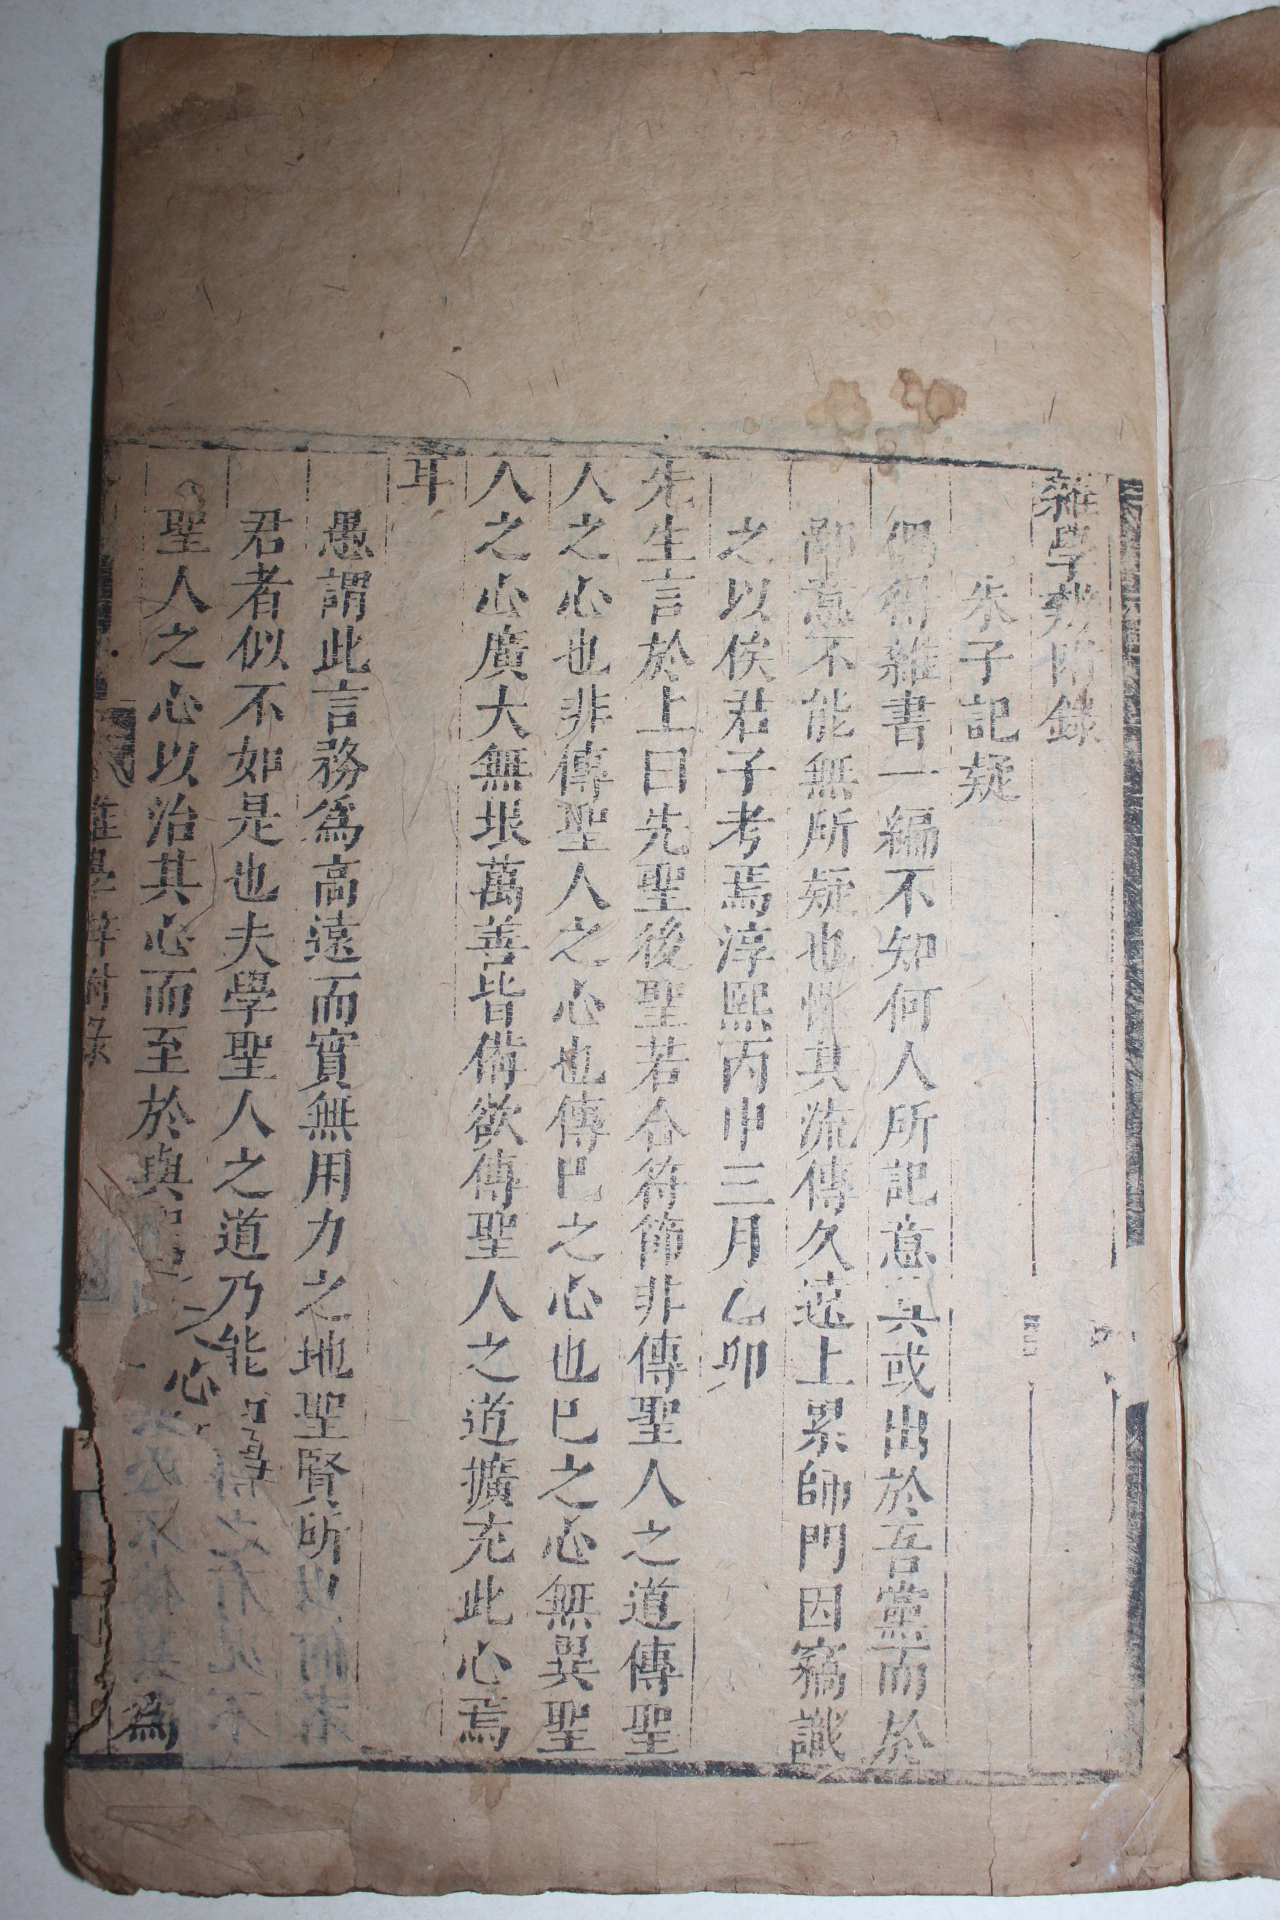 雜學辨附錄
朱子記疑
偶得雜書一編不知何人所記意其或出於吾黨而於
鄙意不能無所疑也懼其流傳久遠上累師門因竊識
之以俟君子考焉淳熙丙申三月乙卯
先生言於上曰先聖後聖若合符節非傳聖人之道傳聖
人之心也非傳聖人之心也傳已之心也已之心無異聖
人之心廣大無垠萬善皆備欲傳聖人之道擴充此心焉
耳
愚謂此言務爲高遠而實無用力之地聖賢所以
君者似不如是也夫學聖人之道乃能 之有況不
聖人之心以治其心而至於與 之心 爲
雜學辨附錄